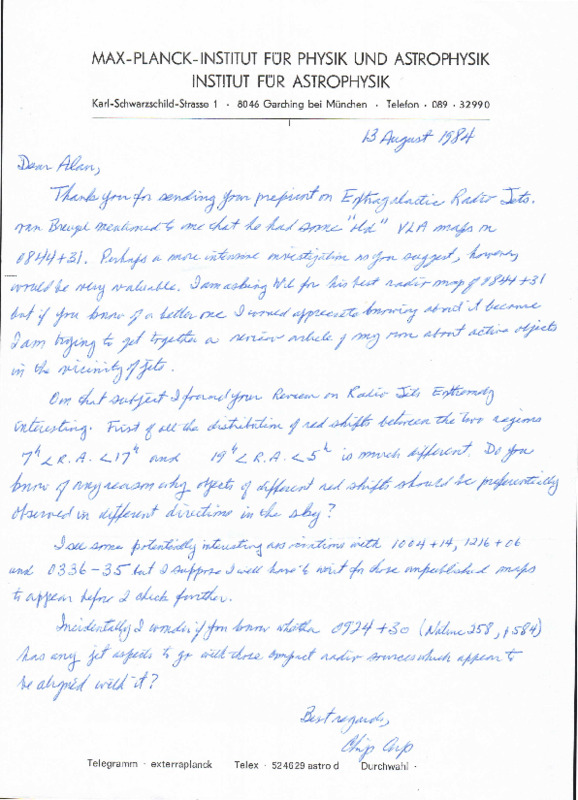 MAX-PLANCK-INSTITUT FÜR PHYSIK UND ASTROPHYSIK
INSTITUT FÜR ASTROPHYSIK
Karl-Schwarzschild-Strasse 1 · 8046 Garching bei München · Telefon · 089 · 32990
13 August 1984
Dear Alan,
Thank you for sending your preprint on Extragalactic Radio Jets.
van Breugel mentioned to me that he had some "old" VLA maps on
0844+31. Perhaps a more intensive investigation as you suggest, however,
would be very valuable. I am asking Wil for his best radio map of 0844+31
but if you know of a better one I would appreciate knowing about it because
I am trying to get together a review article of my own about active objects
in the vicinity of jets.
On that subject I found your Review on Radio Jets Extremely
interesting. First of all the distribution of red shifts between the two regions
7h < R.A. < 17h and 19h < R.A. < 5h is much different. Do you
know of any reason why objects of different red shifts should be preferentially
observed in different directions in the sky?
I see some potentially interesting associations with 1004+14, 1216+06
and 0336-35 but I suppose I will have to wait for those unpublished maps
to appear before I check further.
Incidentally I wonder if you know whether 0924+30 (Nature 258, p584)
has any jet aspects to go with those compact radio sources which appear to
be aligned with it?
Best regards,
Chip Arp
Telegramm · exterraplanck Telex · 524629 astro d Durchwahl ·